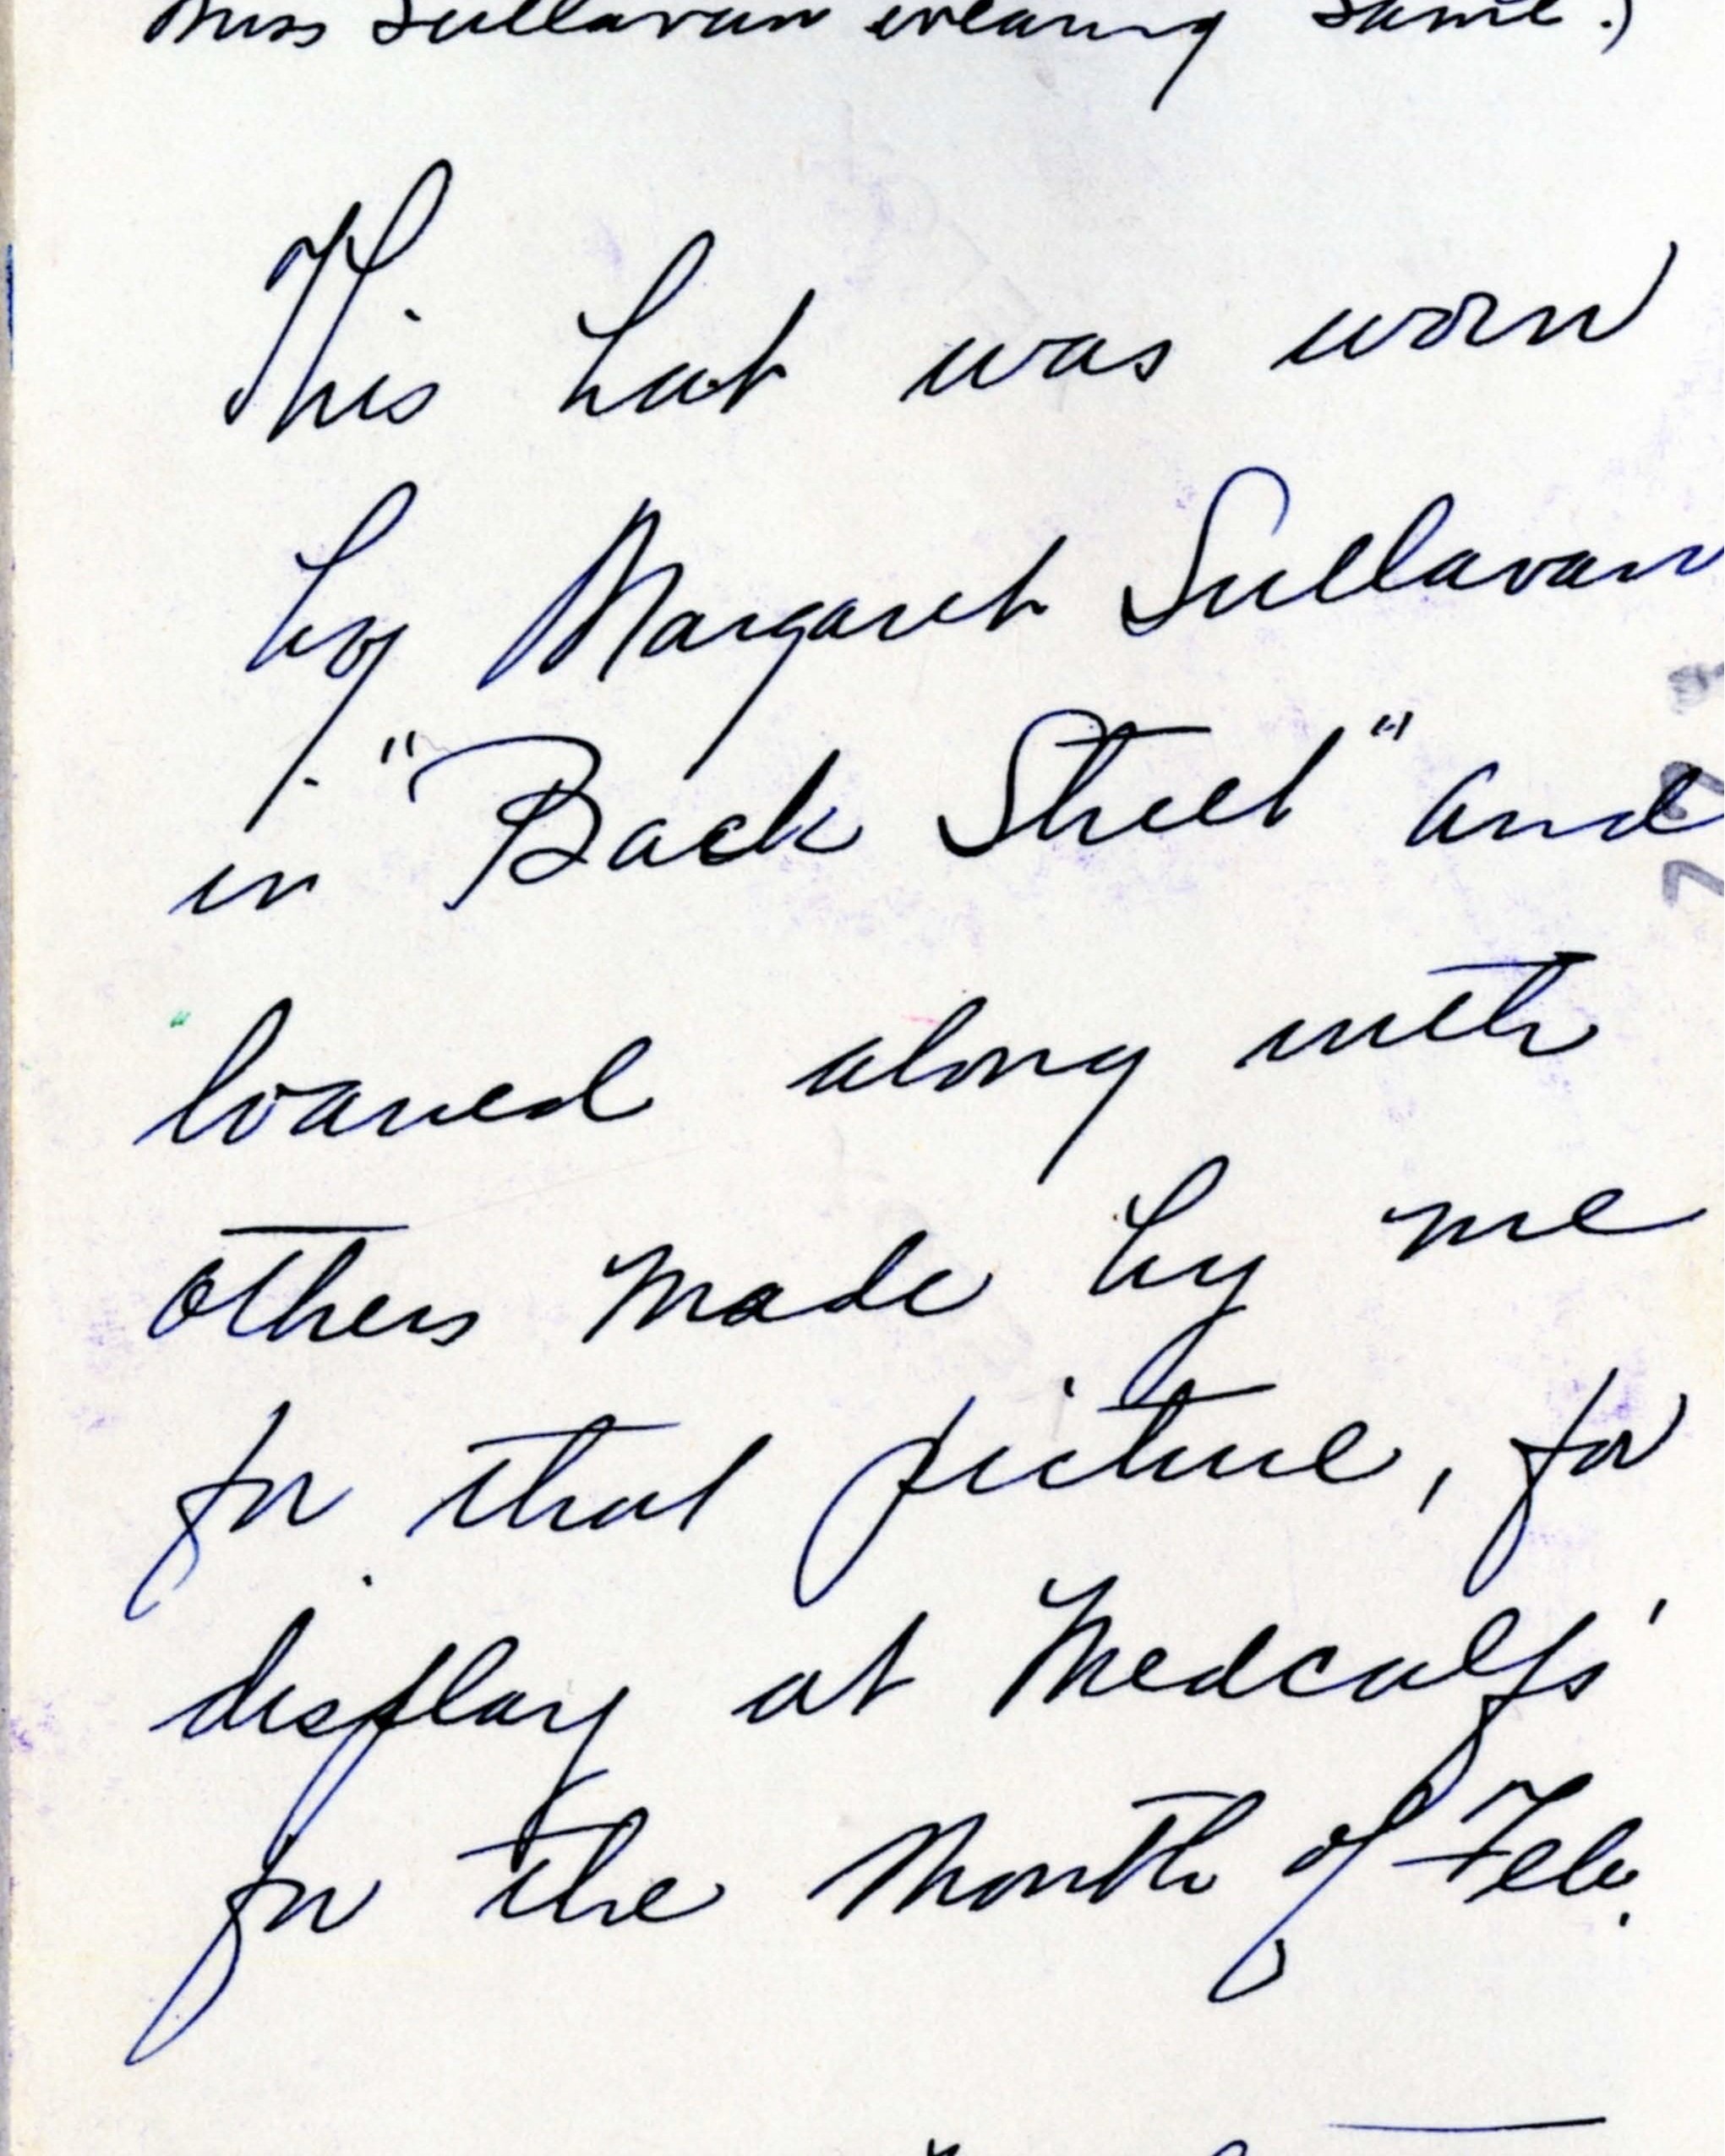 Miss Sullavan wearing same.)
This hat was worn
by Margaret Sullavan
in "Back Street" and
loaned along with
others made by me
for that picture, for
display at Medcalfs'
for the Month of Feb.